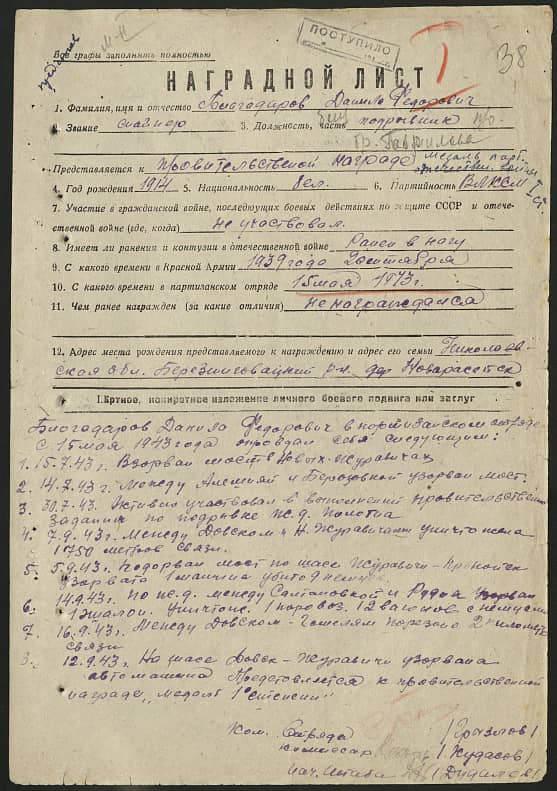 Все графы заполнять полностью
ПОСТУПИЛО
38
НАГРАДНОЙ ЛИСТ
1. Фамилия, имя и отчество Благодаров Данило Федорович
2. Звание 3. Должность, часть подрывник п/о
гр. Гаврилова
Представляется к провительственой награде медаль парт. отечествен. войны I ст.
4. Год рождения 1914 5. Национальность бел. 6. Партийность ВЛКСМ
7. Участие в гражданской войне, последующих боевых действиях по защите СССР и отече-
ственной войне (где, когда) не участвовал.
8. Имеет ли ранения и контузии в отечественной войне Ранен в ногу
9. С какого времени в Красной Армии 1939 года
10. С какого времени в партизанском отряде 15 мая 1943 г.
11. Чем ранее награжден (за какие отличия) не награждался
12. Адрес места рождения представляемого к награждению и адрес его семьи Николаев-
ская обл. Березниговацкий р-н дер
I. Кртное, конкретное изложение личного боевого подвига или заслуг
Благодаров Данило Федорович в портизанском отряде
с 15 мая 1943 года оправдал себя следующим:
1. 15.7.43 г. Взорвал мост Новых-Журавичах
2. 14.7.43 г. Между и Березовкой узорвал мост.
3. 30.7.43. Активно участвовал в провительствен
задании по подрывке ж.д. полотна
4. 7.9.43 г. Между Довском и Н. Журавичами уничтожела
1750 метров связи.
5. 5.9.43. Подорвал мост по шасе Журавичи - Пропойск
узорвата 1 машина убито 9 немцев.
6. 14.9.43 г. по ж.д. между Салтановской и Рудой узорвал
1 эшалон. Уничтоже. 1 поровоз. 12 вагонов с немцами
7. 16.9.43. Между Довском - Гомелям порезано 2 километ
связи
8. 12.9.43 г. На шасе Довск - Журавичи узорвана
автомашина. Предстовляется к провительственной
награде "медоль 1 "
Ком. Отряда /Грызлов/
Комиссар /Кудасов/
Нач. Штаба /Дидилев/